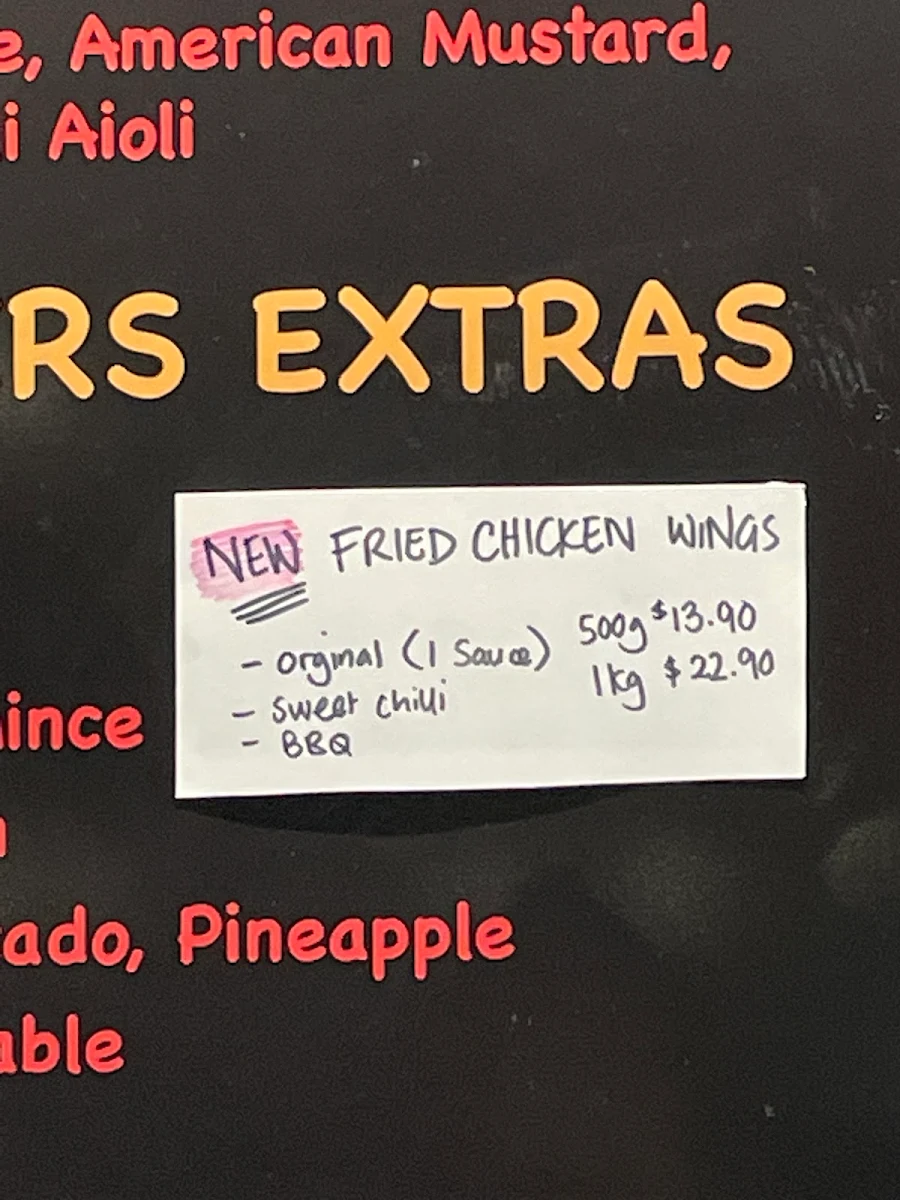 e, American Mustard,
i Aioli
RS EXTRAS
NEW FRIED CHICKEN WINGS
- orginal (1 Sauce) 500g $13.90
- sweet chilli 1kg $22.90
- BBQ
ince
ado, Pineapple
able